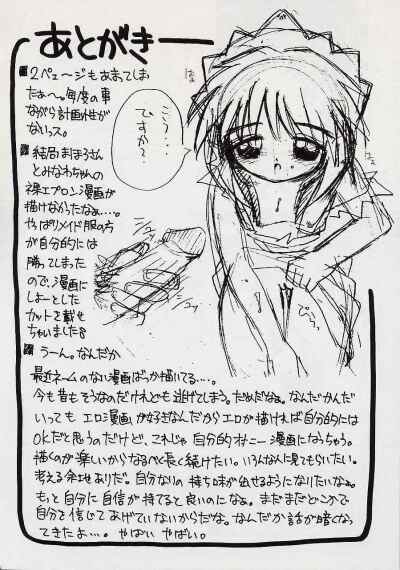 あとがきー
■2ペェ〜ジもあまってしま
たぁ〜。毎度の事
ながら計画性が
ないっス。
■結局まほろさん
とみなわちゃんの
裸エプロン漫画が
描けなかったなぁ…。
やはりメイド服の方
が自分的には
勝ってしまった
ので、漫画に
しよーとした
カットを載せ
ちゃいました
■うーん。なんだか
最近ネームのない漫画ばっか描いてる…。
今も昔もそうなのだけれども逃げてしまう。だめだなぁ。なんだかんだ
いってもエロ漫画が好きなんだからエロが描ければ自分的には
OKだと思うのだけど、これじゃ自分的オナニー漫画になっちゃう。
描くのが楽しいからなるべく長く続けたい。いろんな人に見てもらいたい。
考える余地ありだ。自分なりの持ち味が出せるようになりたいなぁ。
もっと自分に自信が持てると良いのになぁ。まだまだどこかで
自分を信じてあげていないからだな。なんだか話が暗くなっ
てきたよ…。やばいやばい。
こう…
ですか？